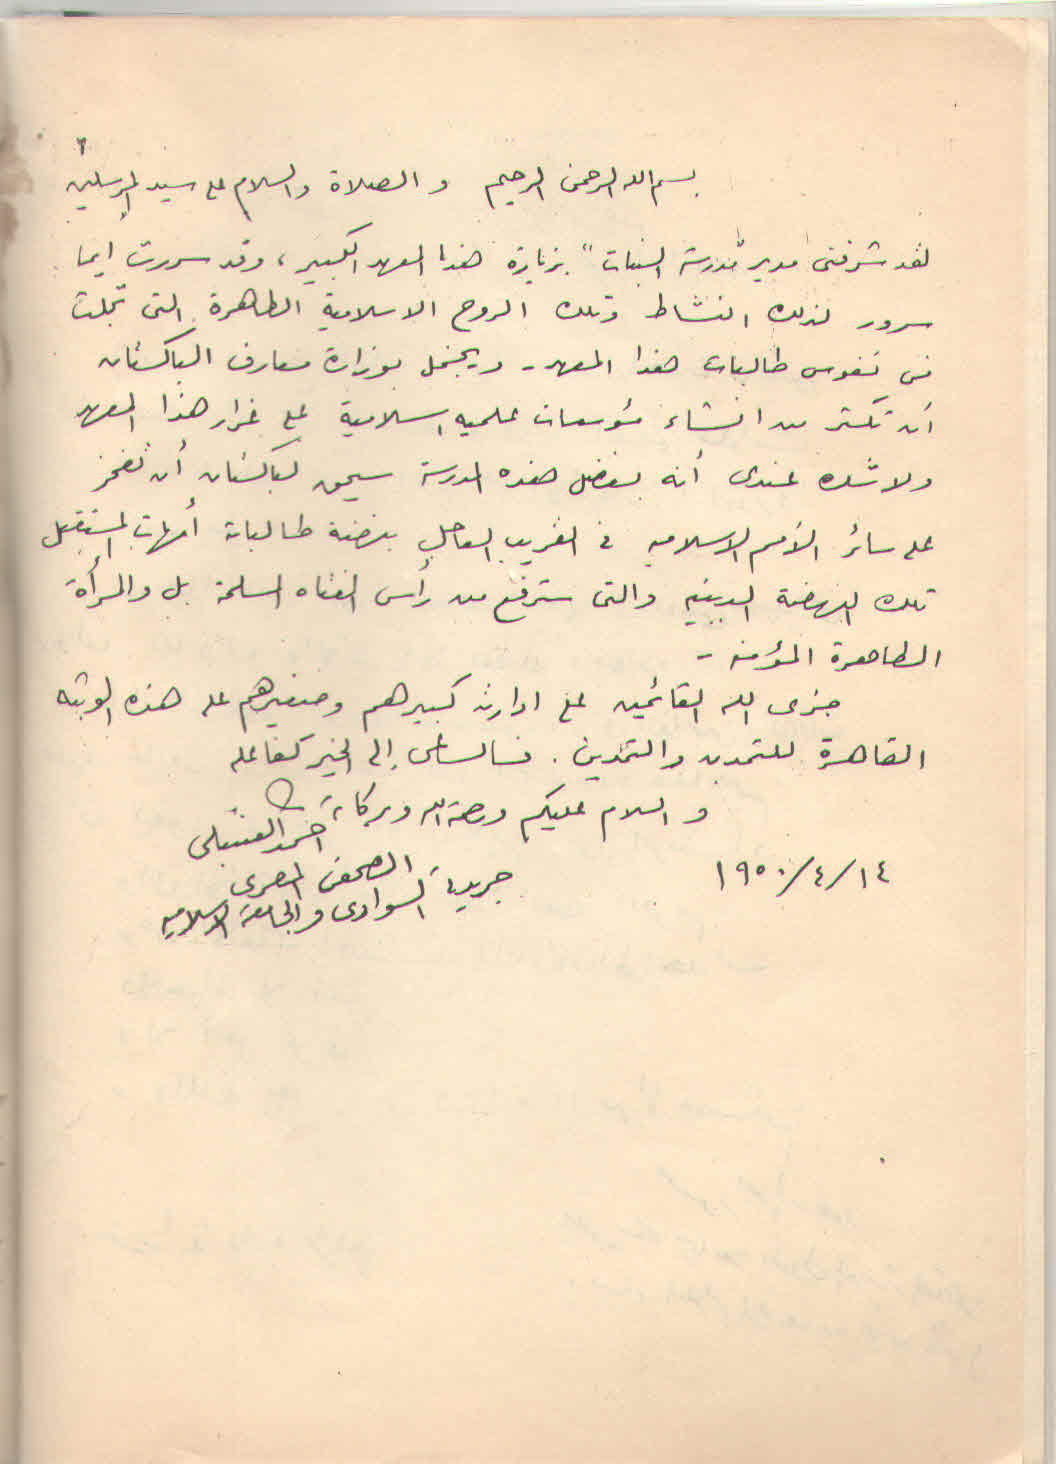 ٢
بسم الله الرحمن الرحيم والصلاة والسلام على سيد المرسلين
لقد شرفنى مدير "مدرسة البنات" بزيارة هذا المعهد الكبير، وقد سررت أيما
سرور لذلك النشاط وتلك الروح الاسلامية الطاهرة التى تجلت
فى نفوس طالبات هذا المعهد - ويجمل بوزارة معارف الباكستان
أن تكثر من انشاء مؤسسات علميه اسلامية على غرار هذا المعهد
ولا شك عندى أنه بفضل هذه المدرسة سيحق لباكستان أن تفخر
على سائر الأمم الاسلاميه فى القريب العاجل بنهضة طالبات أمهات المستقبل
تلك النهضة الدينيه والتى سترفع من رأس الفتاه المسلمة بل والمرأة
الطاهرة المؤمنه -
جزى الله القائمين على ادارته كبيرهم وصغيرهم على هذه الوثبه
القاهرة للتمدن والتمدين. فالساعى إلى الخير كفاعله
والسلام عليكم ورحمة الله وبركاته
أحمد
الصحفى المصرى
جريدة السوادى والجامعة الاسلاميه
١٩٥٠/٤/١٤